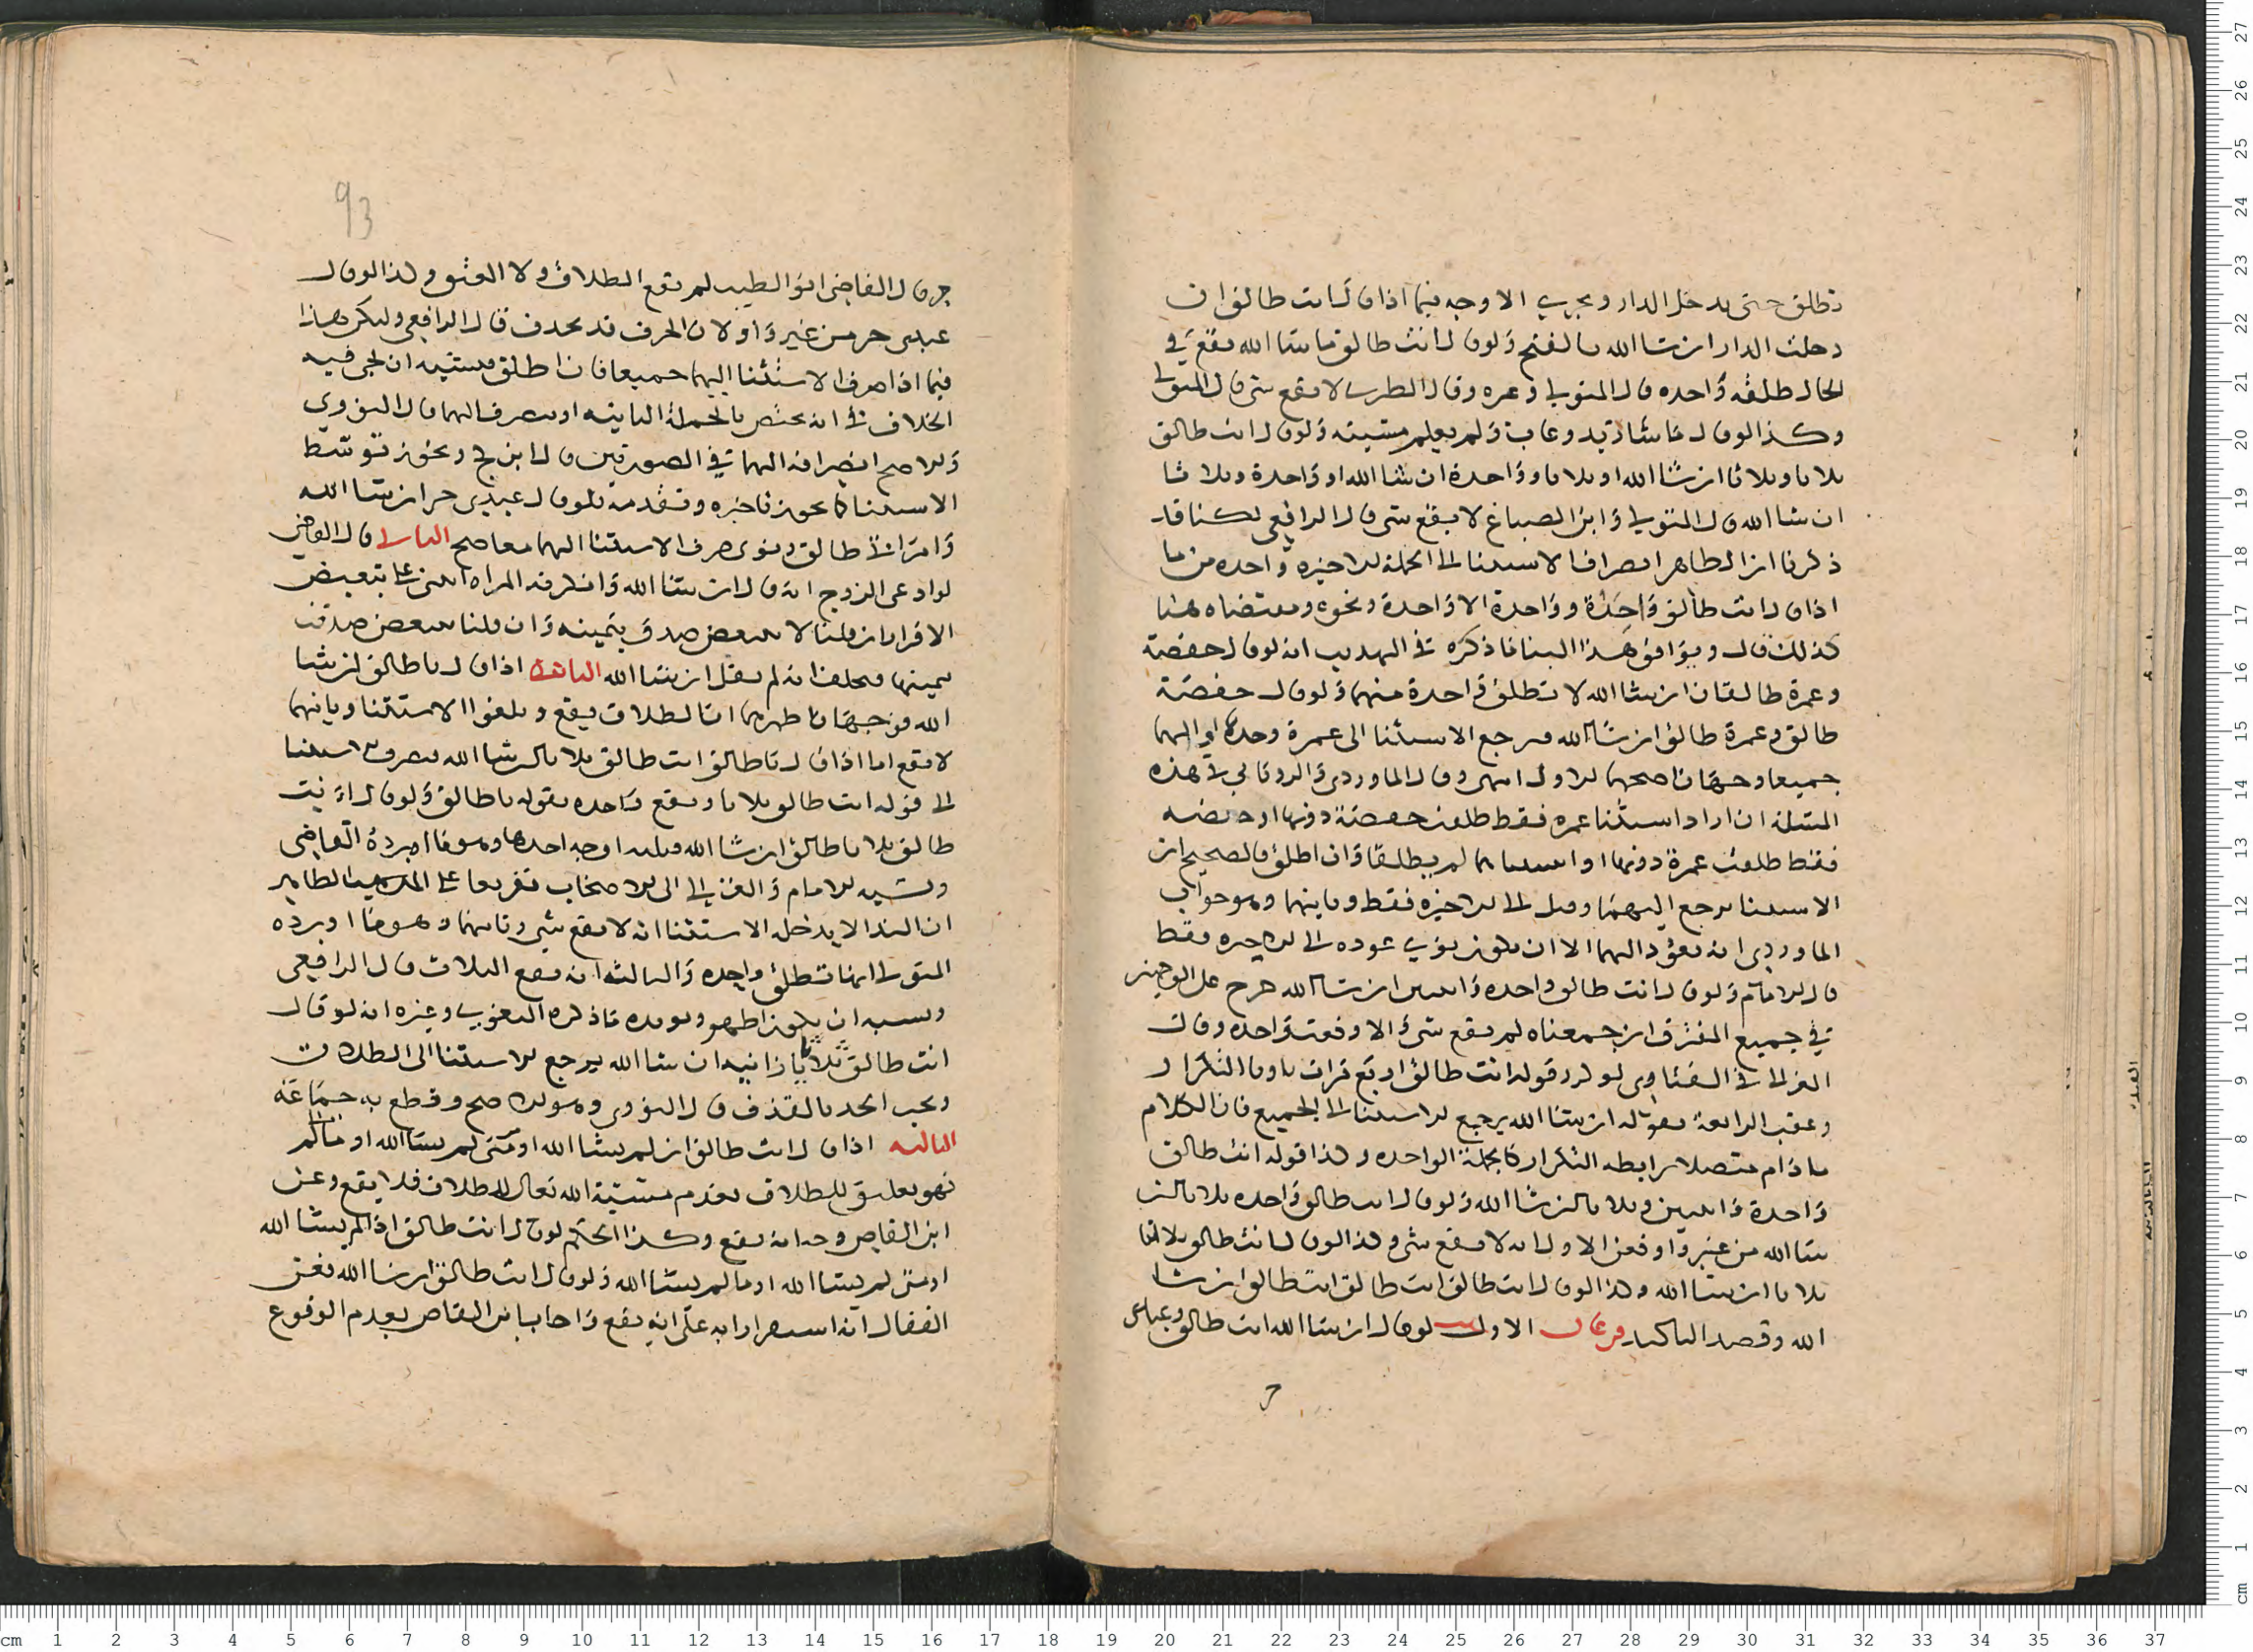 تطلق حتى يدخل الدار ويجري الاوجه فيما اذا قال انت طالق ان
دخلت الدار ان شا الله بالفتح ولو قال انت طالق ما شا الله يقع في
الحال طلقه واحده قال المتولي وغيره وقال الطبري لا يقع شي قال المتولي
وكذا لو قال ما شا زيد وغاب ولم يعلم مشيته ولو قال انت طالق
ثلاثا وثلاثا ان شا الله او ثلاثا وواحدة ان شا الله او واحدة وثلاثا
ان شا الله قال المتولي وابن الصباغ لا يقع شي قال الرافعي لكنا قد
ذكرنا ان الظاهر انصراف الاستثنا الى الجملة الاخيره واحده من ما
اذا قال انت طالق واحدة وواحدة الا واحدة ونحوه ومقتضاه هنا
كذلك قال ويوافق هذا البنا ما ذكره في التهذيب انه لو قال حفصة
وعمرة طالقان ان شا الله لا تطلق واحدة منهما ولو قال حفصة
طالق وعمرة طالق ان شا الله يرجع الاستثنا الى عمرة وحدها او اليهما
جميعا وجهان اصحهما الاول انتهى وقال الماوردي والروياني في هذه
المسئلة ان اراد استثنا عمره فقط طلقت حفصة دونها او حفصه
فقط طلقت عمرة دونها او استثناهما لم يطلقا وان اطلق فالصحيح ان
الاستثنا يرجع اليهما وقيل الى الاخيره فقط وثانيهما وهو جواب
الماوردي انه يعود اليهما الا ان يكون نوى عوده الى الاخيره فقط
قال الامام ولو قال انت طالق واحده واثنتين ان شا الله خرج على الوجهين
في جميع المفترق ان جمعناه لم يقع شي والا وقعت واحده وقال
الغزالي في الفتاوى لو كرر قوله انت طالق اربع مرات ناويا التكرار
وعقب الرابعة بقوله ان شا الله يرجع الاستثنا الى الجميع فان الكلام
ما دام متصلا برابطه التكرار كالجملة الواحده وكذا قوله انت طالق
واحدة واثنتين وثلاثا ان شا الله ولو قال انت طالق واحده ثلاثا ان
شا الله من غير واو فعن الاول انه لا يقع شي وكذا لو قال انت طالق ثلاثا
ثلاثا ان شا الله وكذا لو قال انت طالق انت طالق انت طالق ان شا
الله وقصد التاكيد فرعان الاول لو قال ان شا الله انت طالق وعبدي
حر قال القاضي ابو الطيب لم يقع الطلاق ولا العتق وكذا لو قال
عبدي حر من غير واو لان الحرف قد يحذف قال الرافعي وليكن هذا
فيما اذا صرف الاستثنا اليهما جميعا فان اطلق فيشبه ان يجي فيه
الخلاف في انه يختص بالجملة الثانيه او يصرف اليهما قال النووي
والاصح انصرافه اليهما في الصورتين قال ابن كج ويجوز توسط
الاستثنا كما يجوز تاخيره وتقدمه فلو قال عبدي حر ان شا الله
وامراتي طالق ونوى صرف الاستثنا اليهما معا صح الثاني قال القاضي
لو ادعى الزوج انه قال ان شا الله وانكرته المراه انبنى على تبعيض
الاقرار ان قلنا لا يتبعض صدق بيمينه وان قلنا يتبعض صدقت
بيمينها فيحلف انه لم يقل ان شا الله الثانية اذا قال يا طالق ان شا
الله فوجهان اظهرهما ان الطلاق يقع ويلغوا الاستثنا وثانيهما
لا يقع اما اذا قال يا طالق انت طالق ثلاثا ان شا الله يصرف الاستثنا
الى قوله انت طالق ثلاثا ويقع واحده بقوله يا طالق ولو قال انت
طالق ثلاثا يا طالق ان شا الله فثلثه اوجه احدها وهو ما اورده القاضي
ونسبه الامام والغزالي الى الاصحاب تفريعا على المذهب الظاهر
ان الندا لا يدخله الاستثنا انه لا يقع شي وثانيهما وهو ما اورده
المتولي انها تطلق واحده والثالث انه يقع الثلاث قال الرافعي
ويشبه ان يكون اظهر ويويده ما ذكره البغوي وغيره انه لو قال
انت طالق ثلاثا يا زانيه ان شا الله يرجع الاستثنا الى الطلاق
ويجب الحد بالقذف قال النووي وهو الاصح وقطع به جماعة
الثالثه اذا قال انت طالق ان لم يشا الله او متى لم يشا الله او ما لم
فهو تعليق للطلاق بعدم مشيئة الله تعالى للطلاق فلا يقع وعن
ابن القاص وجه انه يقع وكذا الحكم لو قال انت طالق اذا لم يشا الله
او متى لم يشا الله او ما لم يشا الله ولو قال انت طالق ان شا الله فعن
القفال انه استمر رايه على انه يقع واجاب ابن القاص بعدم الوقوع
93